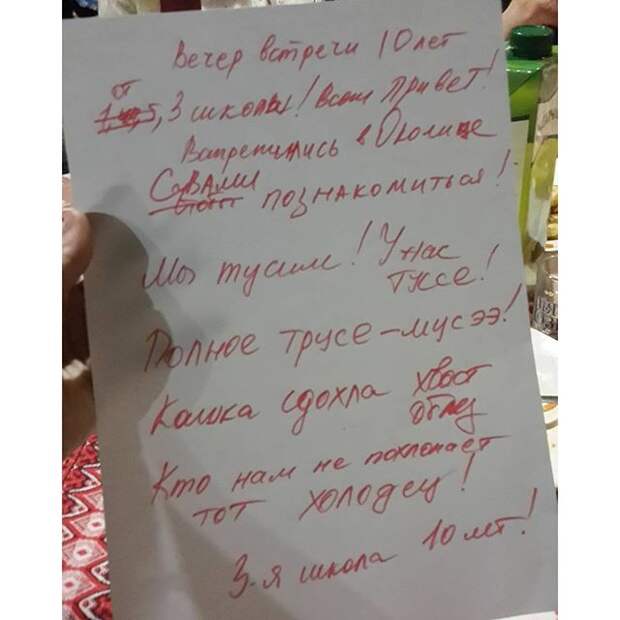 Вечер встречи 10 лет
от 3 школы! Всем привет!
Встретились в Околице
С ВАМИ познакомиться!
Мы тусим! У нас
тусе!
Полное трусе-мусээ!
Кошка сдохла хвост
облез
Кто нам не похлопает
тот холодец!
3-я школа 10 лет!